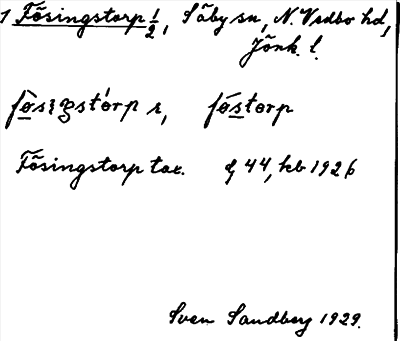 1 Fösingstorp 1/2, Säby sn, N. Vedbo hd,
Jönk. l.
fóstorp
Fösingstorp tax. Jb 44, kb 1926
Sven Sandberg 1929.